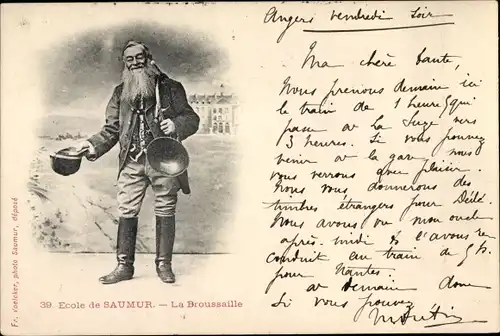 Fr. Voelcker, photo Saumur, déposé
39. Ecole de SAUMUR. — La Broussaille
Angers vendredi soir
Ma chère tante,
Nous prenons demain ici
le train de 1 heure (qui
passe à la Suze vers
3 heures. Si vous pouvez
venir à la gare nous
vous verrons avec plaisir.
Nous vous donnerons des
timbres étrangers pour
Nous avons vu mon oncle
après-midi & l'avons re
conduit au train de 5 h.
pour Nantes.
à demain donc
Si vous pouvez